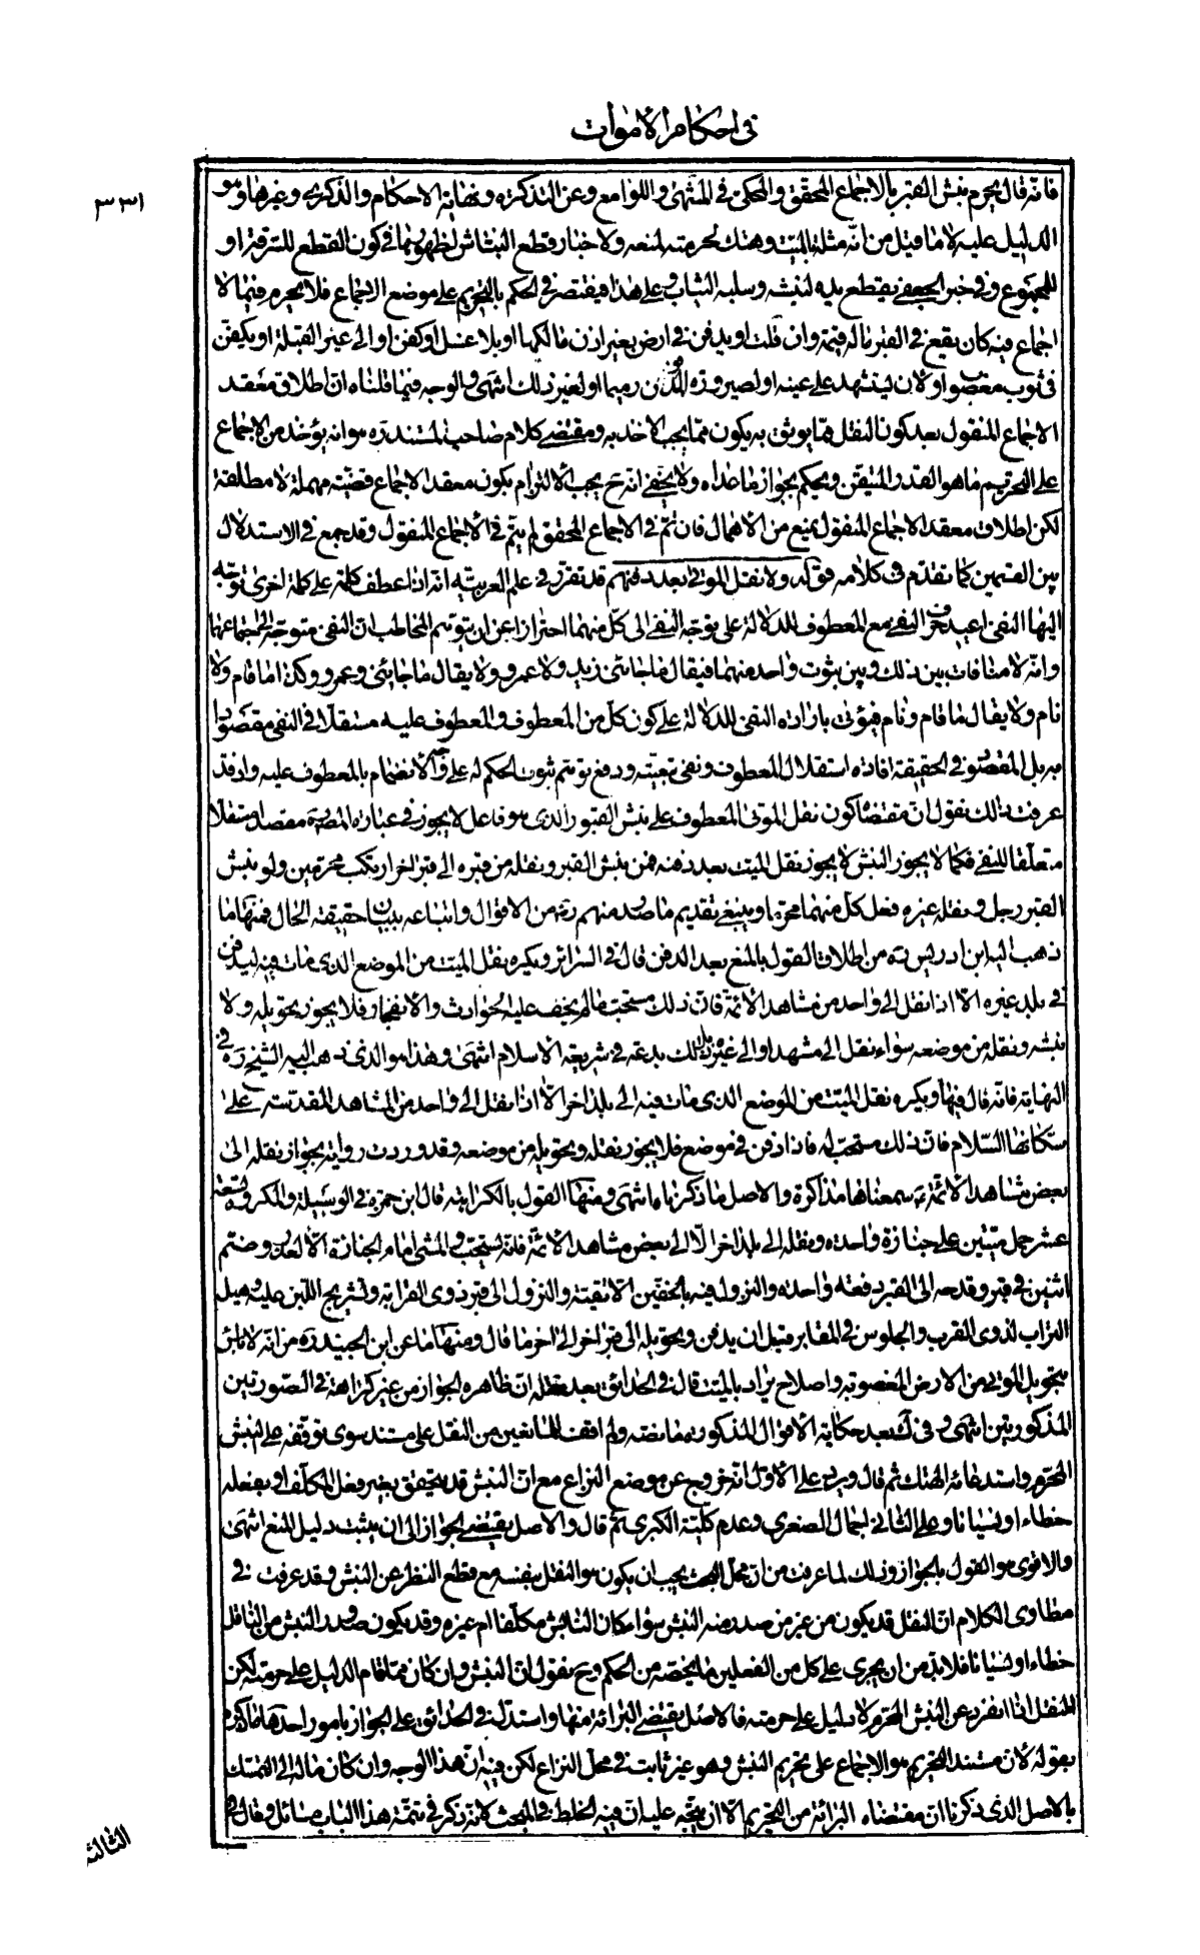 في احكام الأموات
٣٣١
فانه قال يحرم نبش القبر بالاجماع المحقق والمحكى في المنتهى واللوامع وعن التذكرة ونهاية الاحكام والذكرى وغيرها وهو
الدليل عليه لا ما قيل من انه مثلة بالميت وهتك لحرمته لمنعه ولا اخبار قطع النباش لظهورها في كون القطع للسرقة او
للمجموع وفي خبر الجعفي يقطع يده لنبشه وسلبه الثياب وعلى هذا فيقتصر في الحكم بالتحريم على موضع الاجماع فلا يحرم فيما لا
اجماع فيه كان يقع في القبر ماله قيمة وان قلت او يدفن في ارض بغير اذن مالكها او بلا غسل او كفن او الى غير القبلة او يكفن
في ثوب مغصوب او لان ليشهد على عينه او لصيرورة المدفون رميما او لغير ذلك انتهى والوجه فيما قلناه ان اطلاق معقد
الاجماع المنقول بعد كون النقل مما يوثق به يكون مما يجب الاخذ به ومقتضى كلام صاحب المستند ره هو انه يؤخذ من الاجماع
على التحريم ما هو القدر المتيقن ويحكم بجواز ما عداه ولا يخفى انه ح يجب الالتزام بكون معقد الاجماع قضية مهملة لا مطلقة
لكن اطلاق معقد الاجماع المنقول يمنع من الاهمال فان تم في الاجماع المحقق لم يتم في الاجماع المنقول وقد جمع في الاستدلال
بين القسمين كما تقدم في كلامه قوله ولا نقل الموتى بعد دفنهم قد تقرر في علم العربية انه اذا عطف كلمة على كلمة اخرى توجه
اليها النفي اعيد حرف النفي مع المعطوف للدلالة على توجه النفي الى كل منهما احترازا عن ان يتوهم المخاطب ان النفي متوجه الى اجتماعهما
وانه لا منافات بين ذلك وبين ثبوت واحد منهما فيقال ما جائني زيد ولا عمرو ولا يقال ما جائني وعمرو وكذا ما قام ولا
نام ولا يقال ما قام ونام فيؤتى باداة النفي للدلالة على كون كل من المعطوف والمعطوف عليه مستقلا في النفي مقصودا
به بل المقصود في الحقيقة افادة استقلال المعطوف ونفي تبعيته ودفع توهم ثبوت الحكم له على وجه الانضمام بالمعطوف عليه واذ قد
عرفت ذلك نقول ان مقتضاه كون نقل الموتى المعطوف على نبش القبور الذي هو فاعل لا يجوز في عبارة المصنف ره مقصدا مستقلا
متعلقا للنفي فكما لا يجوز النبش لا يجوز نقل الميت بعد دفنه فمن نبش القبر ونقله من قبره الى قبر اخر ارتكب محرمين ولو نبش
القبر رجل ونقله غيره فعل كل منهما محرما وينبغي تقديم ما صدر منهم ره من الاقوال واتباعه ببيان حقيقة الحال فمنها ما
ذهب اليه ابن ادريس ره من اطلاق القول بالمنع بعد الدفن قال في السرائر ويكره نقل الميت من الموضع الذي مات فيه ليدفن
في بلد غيره الا اذا نقل الى واحد من مشاهد الأئمة فان ذلك مستحب ما لم يخف عليه الحوادث والانفجار فلا يجوز تحويله ولا
نبشه ونقله من موضعه سواء نقل الى مشهد او الى غيره بل ذلك بدعة في شريعة الاسلام انتهى وهذا هو الذي ذهب اليه الشيخ ره في
النهاية فانه قال فيها ويكره نقل الميت من الموضع الذي مات فيه الى بلد اخر الا اذا نقل الى واحد من المشاهد المقدسة على
سكانها السلام فان ذلك مستحب له فاذا دفن في موضع فلا يجوز نقله وتحويله من موضعه وقد وردت رواية بجواز نقله الى
بعض مشاهد الائمة ع سمعناها مذاكرة والاصل ما ذكرناه انتهى ومنها القول بالكراهة قال ابن حمزة في الوسيلة والمكروه تسعة
عشر حمل ميتين على جنازة واحدة ونقله الى بلد اخر الا الى بعض مشاهد الائمة فانه يستحب والمشي امام الجنازة الا لعذر وضم
اثنين في قبر وقدحه الى القبر دفعة واحدة والنزول فيه بالخفين الا تقية والنزول الى قبر ذوي القرابة وتشريج اللبن عليه وهيل
التراب لذوي القرب والجلوس في المقابر قبل ان يدفن وتحويله الى قبر اخر الى اخر ما قال ومنها ما عن ابن الجنيد ره من انه لا باس
بتحويل الموتى من الارض المغصوبة واصلاح يراد بالميت قال في الحدائق بعد نقله ان ظاهره الجواز من غير كراهة في الصورتين
المذكورتين انتهى وفي لك بعد حكاية الاقوال المذكورة ما نصه ولم اقف للمانعين من النقل على مستند سوى توقفه على النبش
المحرم واستدعائه الهتك ثم قال ويرد على الاول انه خروج عن موضع النزاع مع ان النبش قد يتحقق بغير فعل المكلف او بفعله
خطاء او نسيانا وعلى الثاني اجمال الصغرى وعدم كلية الكبرى ثم قال والاصل يقتضي الجواز الى ان يثبت دليل المنع انتهى
والاقوى هو القول بالجواز وذلك لما عرفت من ان محل البحث يجب ان يكون هو النقل بنفسه مع قطع النظر عن النبش وقد عرفت في
مطاوى الكلام ان النقل قد يكون من غير من صدر منه النبش سواء كان النابش مكلفا ام غيره وقد يكون صدور النبش من الناقل
خطاء او نسيانا فلا بد من ان يجرى على كل من الفعلين ما يخصه من الحكم وح نقول ان النبش وان كان مما قام الدليل على حرمته لكن
النقل اذا انفرد عن النبش المحرم لا دليل على حرمته فالاصل يقتضي البرائة منها واستدل في الحدائق على الجواز بامور احدها ما ذكره
بقوله لان مستند التحريم هو الاجماع على تحريم النبش وهو غير ثابت في محل النزاع لكن فيه ان هذا الوجه وان كان ماله الى التمسك
بالاصل الذي ذكرنا ان مقتضاه البرائة من التحريم الا انه يتجه عليه ان فيه الخلط في المبحث لانه ذكر في تتمة هذا الباب مسائل وقال في
الثالثة